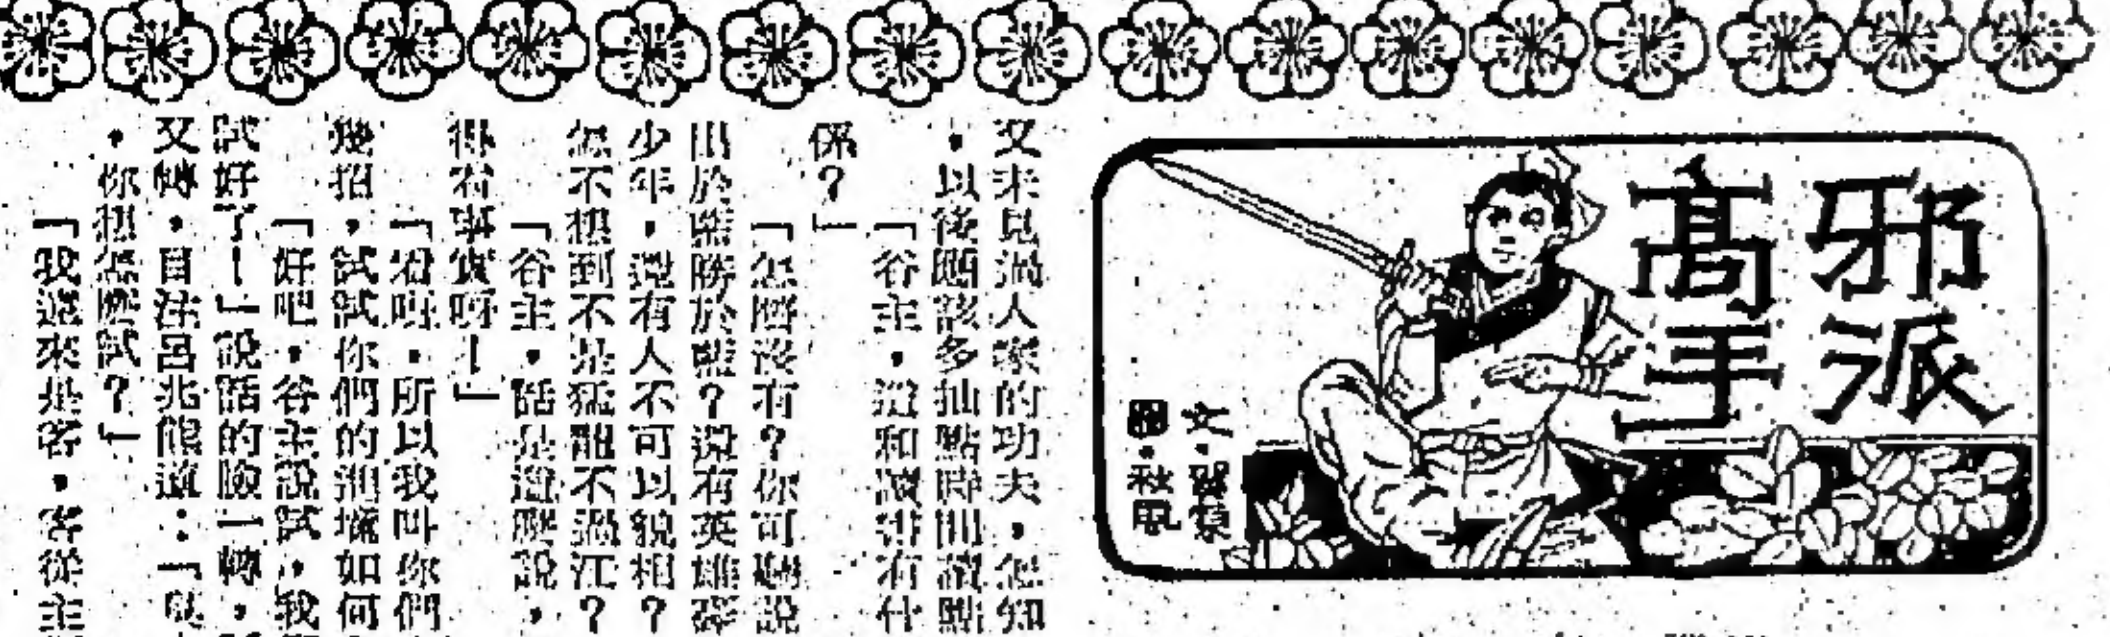 邪派
高手
文・
圖・秋風
又未見過人家的功夫,怎知
,以後題該多抽點時間讀點
「谷主,這和讀書有什
係?」
「怎麼沒有?你可聽說
出於藍勝於藍?還有英雄
少年,還有人不可以貌相?
怎不想到不是猛龍不過江?
「谷主,話是這麼說,
得有事實呀!」
「看呀,所以我叫你們
幾招,試試你們的 如何
「好吧,谷主說試,我
試好了!」說話的臉一轉,
又轉,目注呂北熊道:「
,你想怎麼試?」
「我遠來是客,客從主